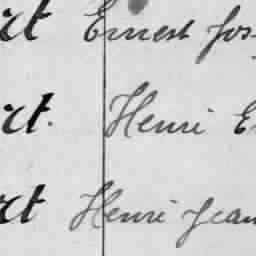 rt Ernest Jos
rt. Henri E
rt Henri Jean